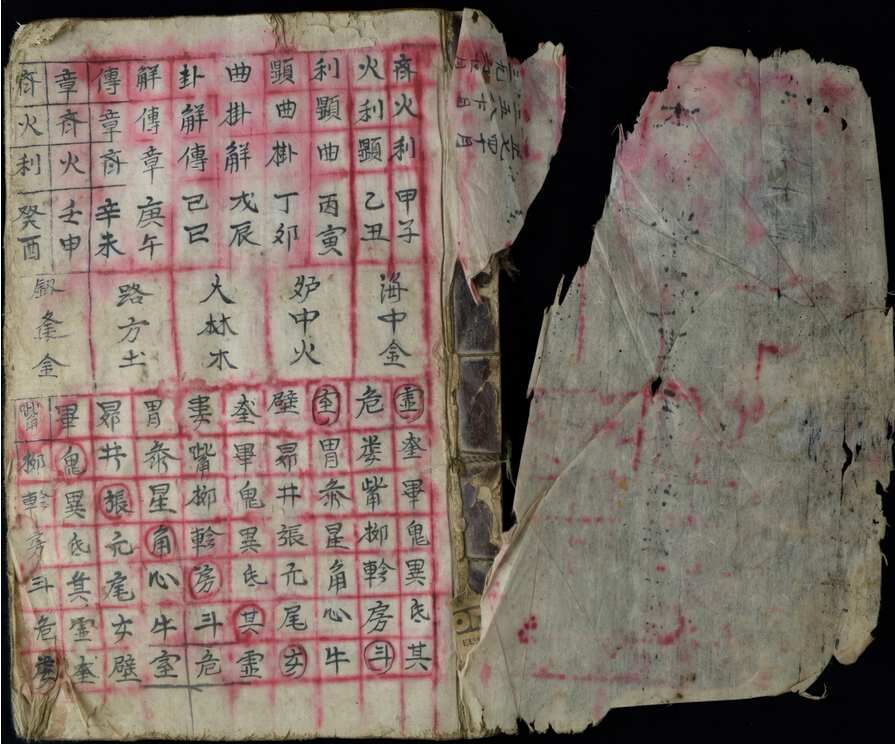 斉火利甲子
火利顕乙丑
利顕曲丙寅
顕曲掛丁卯
曲掛解戊辰
卦解傳己巳
解傳章庚午
傳章斉辛未
章斉火壬申
斉火利癸酉
海中金
炉中火
大林木
路方土
釼峯金
虚奎畢鬼異氐其
危娄觜柳軫房斗
室胃参星角心牛
壁昴井張亢尾女
奎畢鬼異氐其虚
婁觜柳軫房斗危
胃参星角心牛室
昴井張亢尾女壁
畢鬼異氐其虚奎
觜柳軫房斗危婁